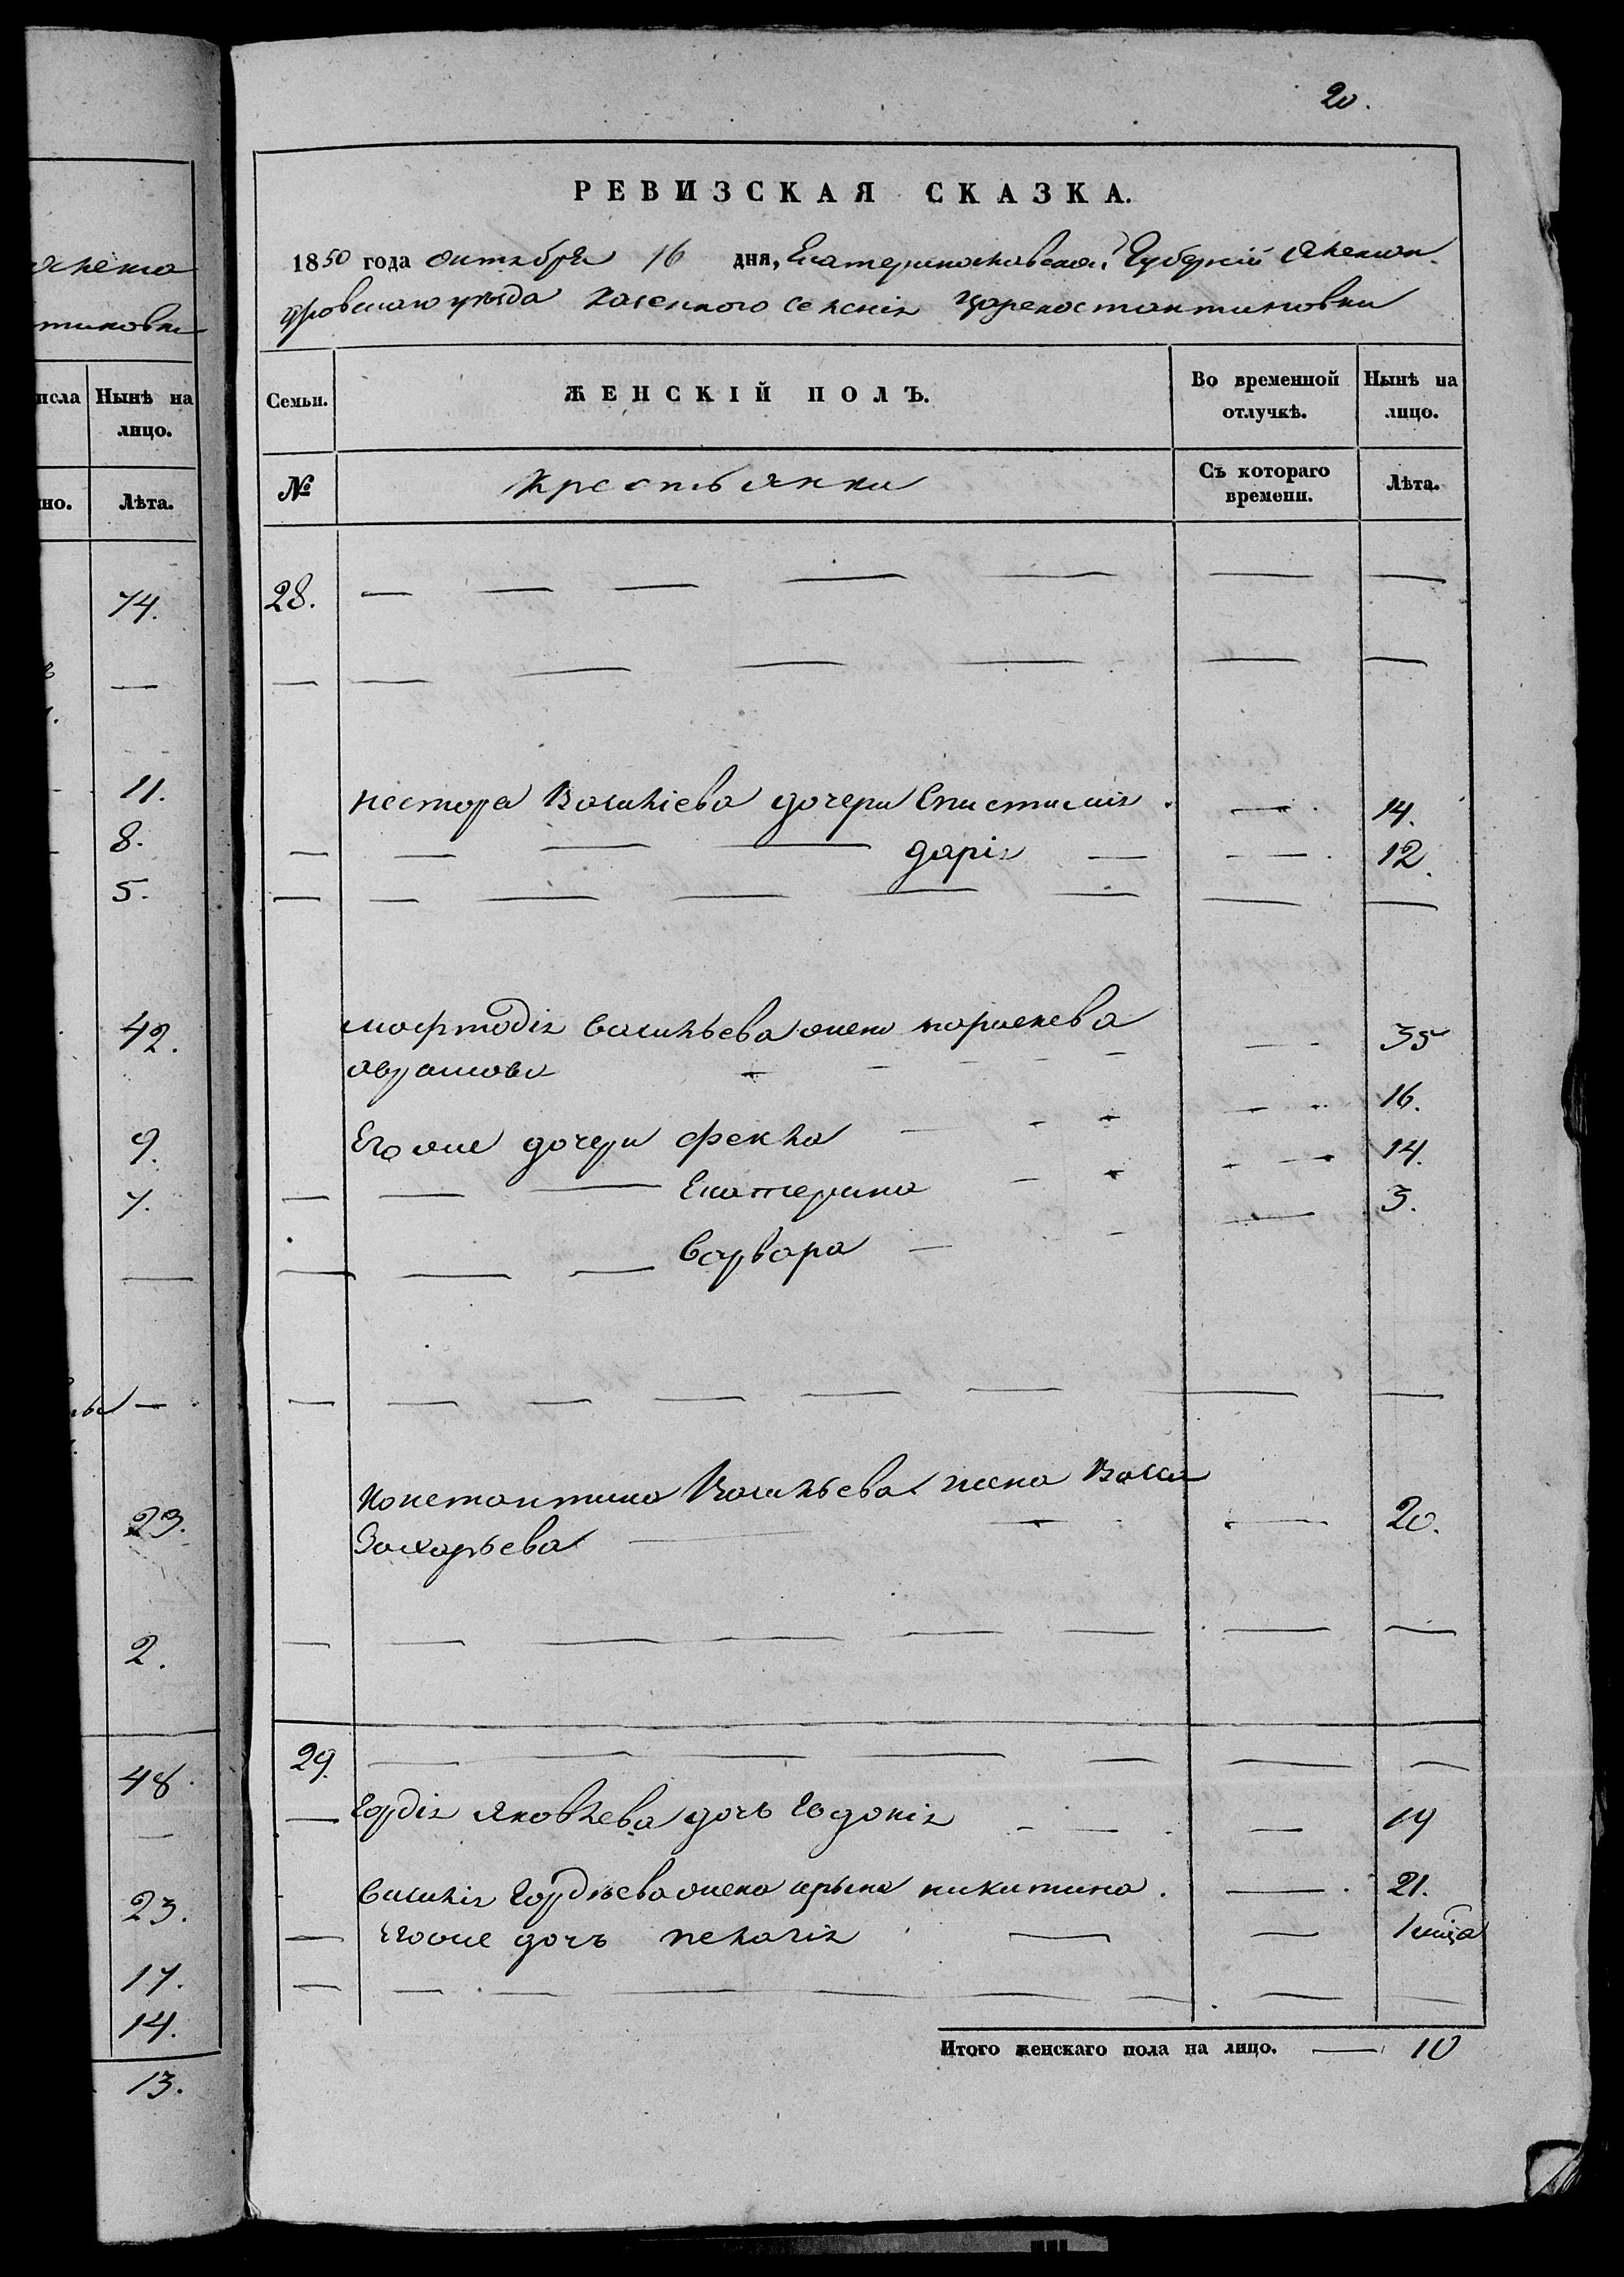 20.
РЕВИЗСКАЯ СКАЗКА.
1850 года октября 16 дня, Екатеринославской Губерній Александ
ровскаго уезда казенного селенія Цареконстантиновки
Семьи.
ЖЕНСКІЙ ПОЛЪ.
Во временной отлучкѣ.
Нынѣ на лицо.
№
Крестьянки
Съ котораго времени.
Лѣта.
28. — — — — — — —
— — — — — — —
Нестора Василіева дочери — 14.
— — — — дарія — — 12.
— — — — — — — —
Васильева жена
35
Его же дочери Фекла — 16.
— — — Екатерина — — 14.
— — — Варвара — — 3.
— — — — — — — —
Константина Васильева жена
Захарьева — — — 20.
— — — — — — — —
29. — — — — — — —
— Гордія Яковлева дочь — — — 19
Василія Гордѣева жена Ирына никитина. — 21.
— его же дочь пелагія — — 1
— — — — — — — —
Итого женскаго пола на лицо. — 10
тиновки
исла
Нынѣ на лицо.
но.
Лѣта.
74.
—
11.
8.
5.
42.
9.
7.
—
—
23.
2.
48.
—
23.
17.
14.
13.